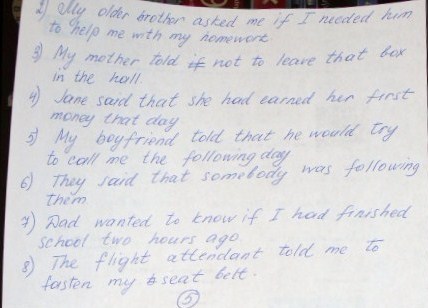 2) My older brother asked me if I needed him
to help me with my homework
3) My mother told if not to leave that box
in the hall.
4) Jane said that she had earned her first
money that day
5) My boyfriend told that he would try
to call me the following day
6) They said that somebody was following
them
7) Dad wanted to know if I had finished
school two hours ago
8) The flight attendant told me to
fasten my seat belt.
5